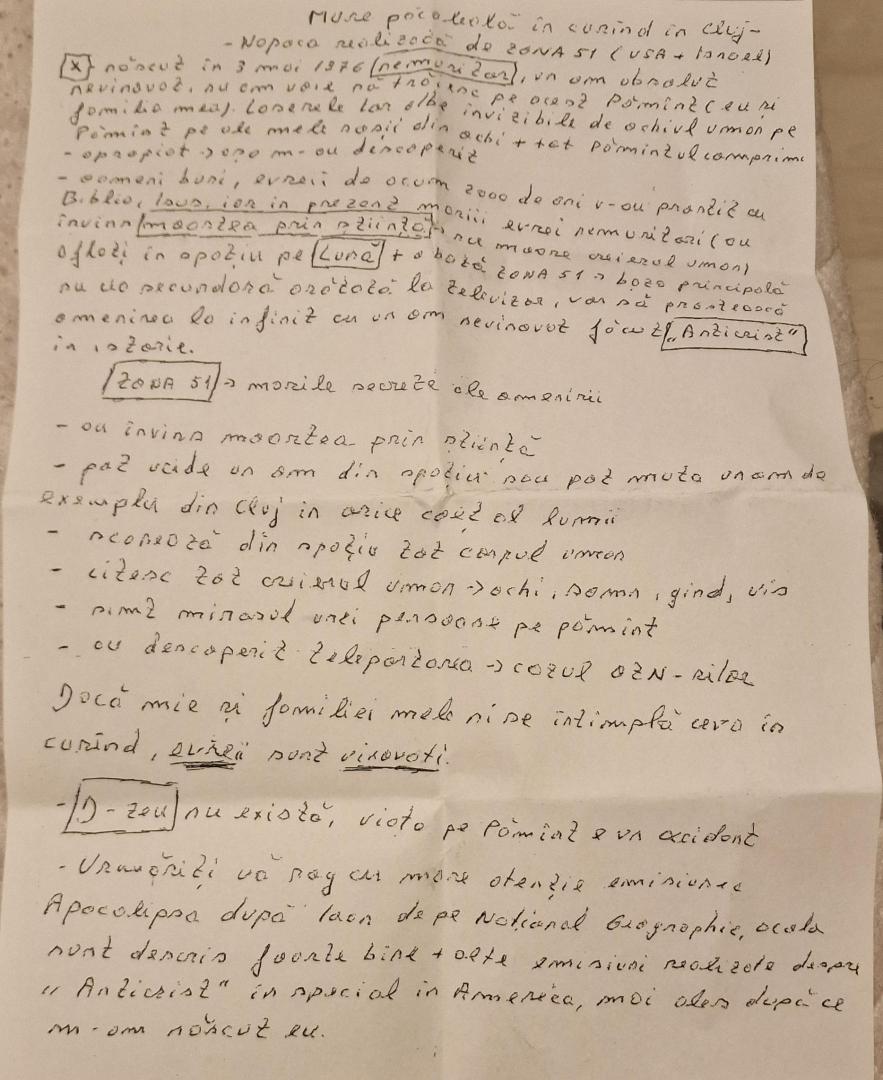 Mare păcăleală în curînd în Cluj-
-Napoca realizată de ZONA 51 (USA + Israel)
[X] născut în 3 mai 1976 (nemuritor), un om absolut
nevinovat, nu am voie să trăiesc pe acest Pămînt (eu și
familia mea). Laserele lor albe invizibile de ochiul uman pe
Pămînt pe ale mele roșii din ochi + tot Pămîntul comprim
- apropiat → așa m-au descoperit
- oameni buni, evreii de acum 2000 de ani v-au prostit cu
Biblia, Isus, iar în prezent marii evrei nemuritori (au
învins moartea prin știință) → nu moare creierul uman)
aflați în spațiu pe Lună + o bază ZONA 51 → baza principală
nu cio secundară arătată la televizor, vor să prostească
omenirea la infinit cu un om nevinovat făcut "Anticrist"
în istorie.
ZONA 51 → marile secrete ale omenirii
- au învins moartea prin știință
- pot ucide un om din spațiu sau pot muta un om de
exemplu din Cluj in orice colț al lumii
- scanează din spațiu tot corpul uman
- citesc tot creierul uman → ochi, somn, gind, vis
- simt mirosul unei persoane pe pămînt
- au descoperit teleportarea → cazul OZN-rilor
Dacă mie și familiei mele ni se întimplă ceva în
curînd, evreii sunt vinovati.
- D-zeu nu există, viața pe Pămînt e un accident
- Urmăriți vă rog cu mare atenție emisiunea
Apocalipsa după Ioan de pe National Geographic, acolo
sunt descris foarte bine + alte emisiuni realizate despre
"Anticrist" în special in America, mai ales după ce
m-am născut eu.